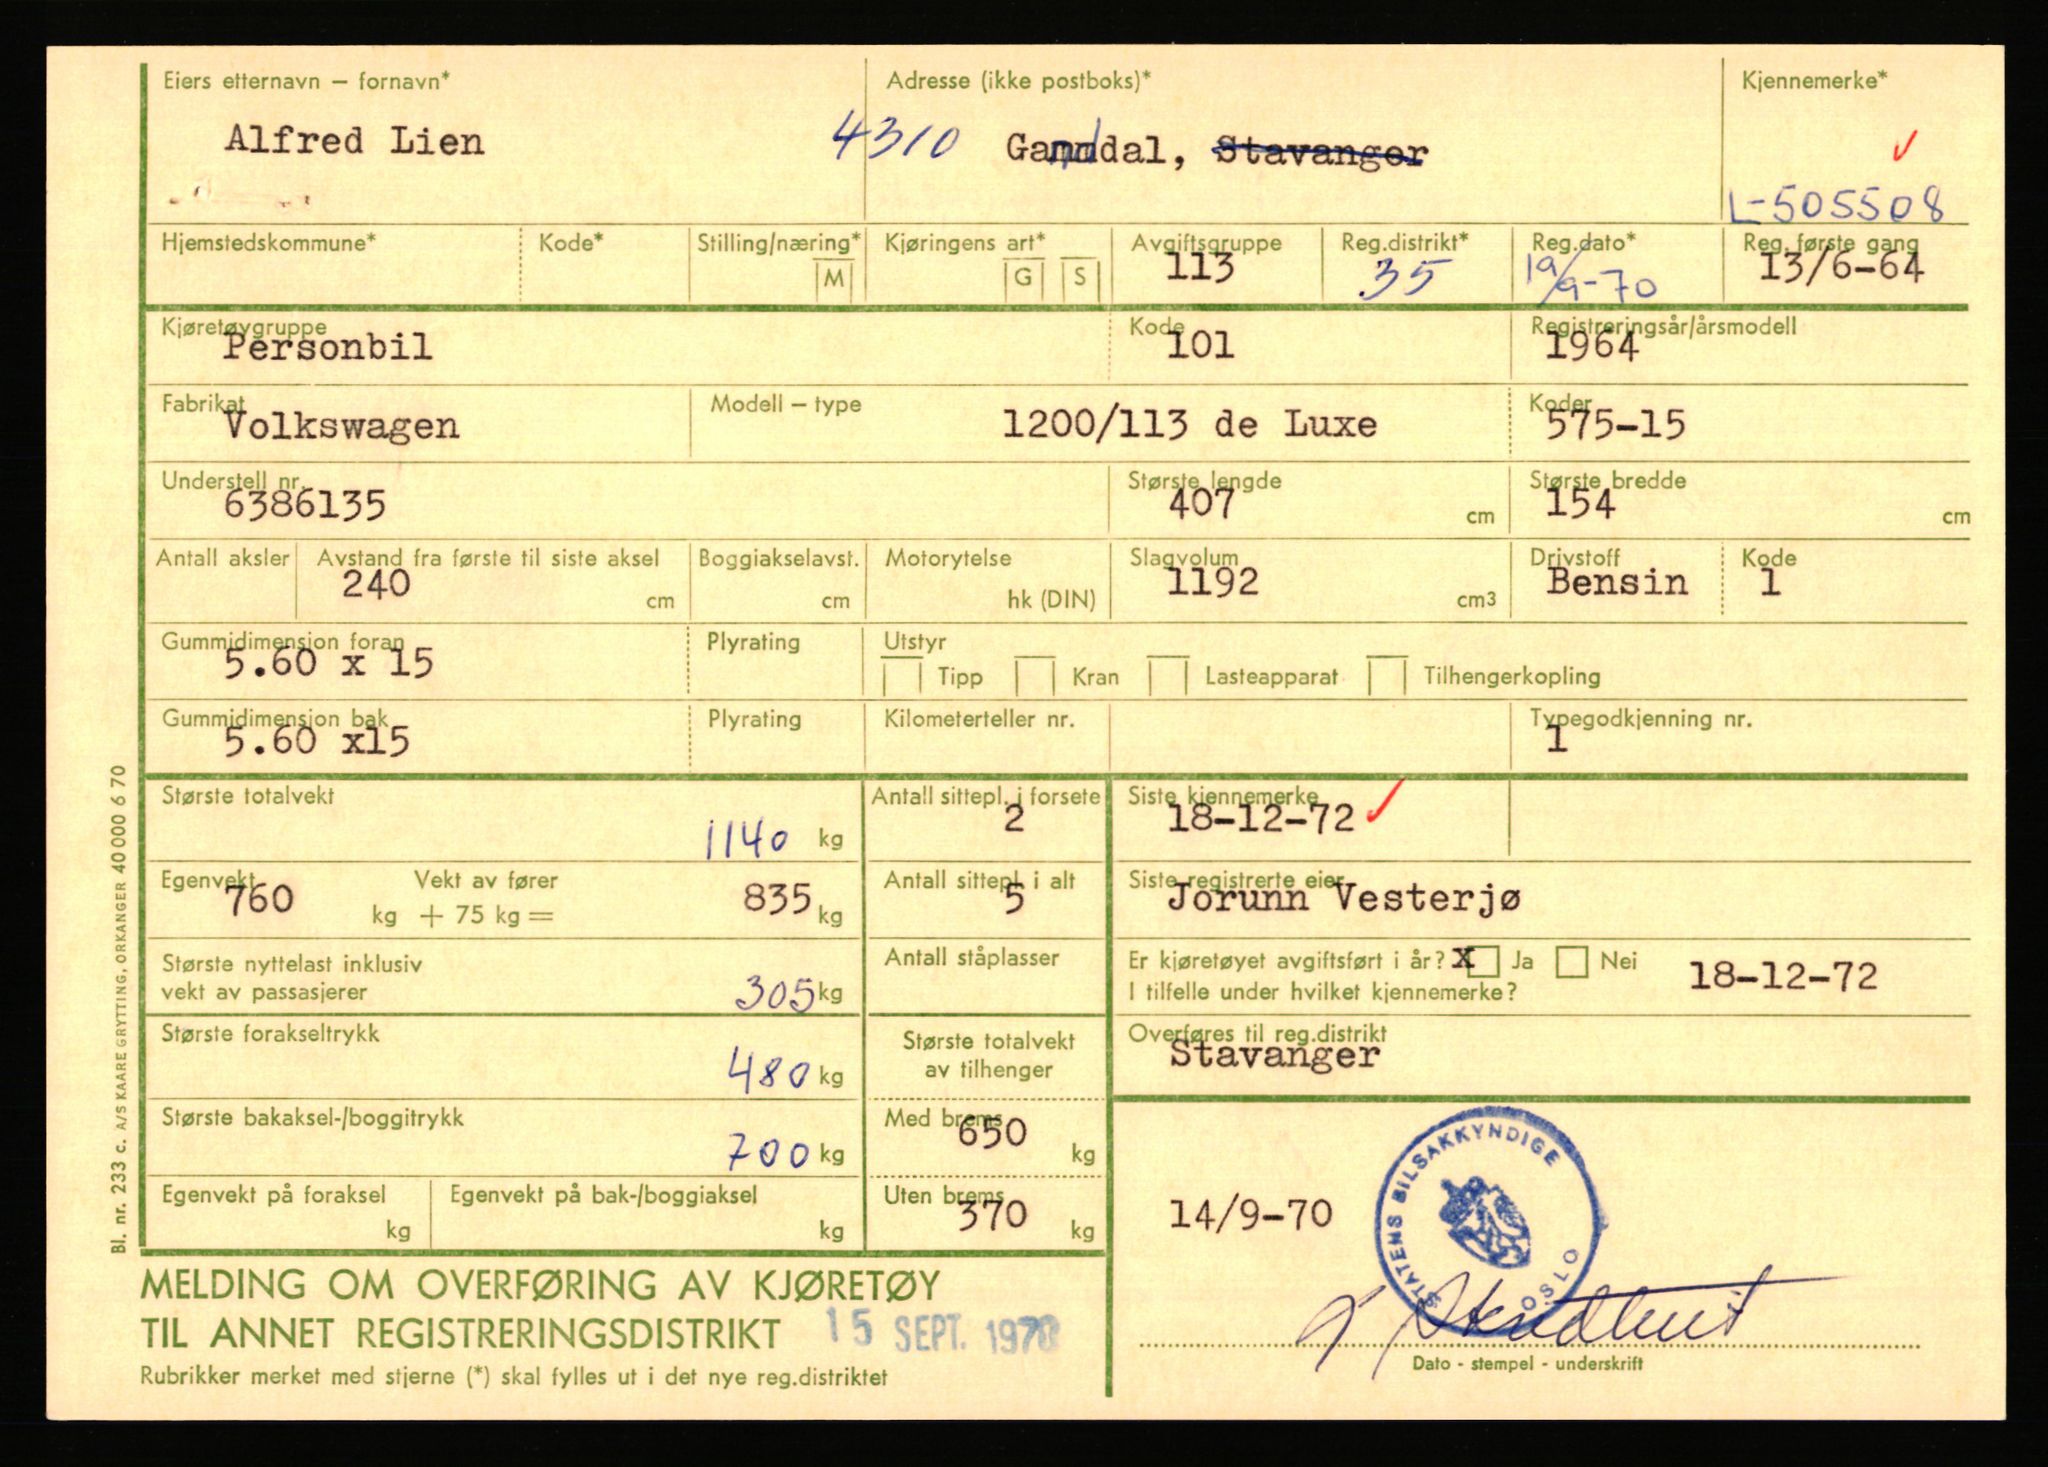 Eiers etternavn – fornavn* Adresse (ikke postboks)* Kjennemerke*
Alfred Lien 4310 Ganddal, Stavanger
L-505508
Hjemstedskommune* Kode* Stilling/næring* M Kjøringens art* G S Avgiftsgruppe Reg.distrikt* Reg.dato* Reg. første gang
113 35 19/9-70 13/6-64
Kjøretøygruppe Kode Registreringsår/årsmodell
Personbil 101 1964
Fabrikat Modell – type Koder
Volkswagen 1200/113 de Luxe 575-15
Understell nr. Største lengde Største bredde
6386135 407 cm 154 cm
Antall aksler Avstand fra første til siste aksel Boggiakselavst. Motorytelse Slagvolum Drivstoff Kode
240 cm cm hk (DIN) 1192 cm3 Bensin 1
Gummidimensjon foran Plyrating Utstyr
5.60 x 15 Tipp Kran Lasteapparat Tilhengerkopling
Gummidimensjon bak Plyrating Kilometerteller nr. Typegodkjenning nr.
5.60 x15 1
Største totalvekt Antall sittepl. i forsete Siste kjennemerke
1140 kg 2 18-12-72
Egenvekt Vekt av fører Antall sittepl. i alt Siste registrerte eier
760 kg + 75 kg = 835 kg 5 Jorunn Vesterjø
Største nyttelast inklusiv Antall ståplasser Er kjøretøyet avgiftsført i år? x Ja Nei
vekt av passasjerer 305 kg I tilfelle under hvilket kjennemerke? 18-12-72
Største forakseltrykk Største totalvekt Overføres til reg.distrikt
480 kg av tilhenger Stavanger
Største bakaksel-/boggitrykk Med brems
700 kg 650 kg
Egenvekt på foraksel Egenvekt på bak-/boggiaksel Uten brems
kg kg 370 kg 14/9-70
STATENS BILSAKKYNDIGE OSLO
MELDING OM OVERFØRING AV KJØRETØY
TIL ANNET REGISTRERINGSDISTRIKT 15 SEPT. 1970
Rubrikker merket med stjerne (*) skal fylles ut i det nye reg.distriktet
Dato - stempel - underskrift
Bl. nr. 233 c. A/S KAARE GRYTTING, ORKANGER 40 000 6 70